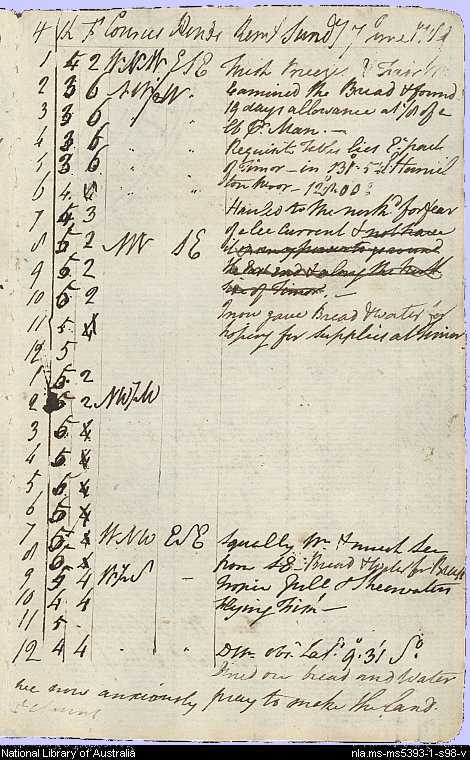 H K F Courses Winds Remks Sundy 7 June 1789
1 5 2 WNW ESE Fresh Breezes &
2 3 6 Examined the Bread & found
3 3 6 " " 19 days allowance at 1/8 of a
4 3 6 " " lb Pr. Man. —
5 3 6 " " Requin's Table lies Et. part
of Timor — in
6 4 4 " "
7 4 3 Hauled to the northd for fear
8 5 2 NW SE of a lee Current & not have
9 5 2 the East end & along the North
10 5 2 of Timor. —
11 5 4 I now gave Bread & water for
hoping for supplies at Timor
12 5
1 5 2
2 5 2 NWbW
3 5 4
4 5 4
5 5 4
6 5 4
7 5 WNW ESE Squally Wr. & much Sea
8 5 from SE — Bread & Water for Breakft
9 5 4 — Tropic Gull & Sheerwaters
10 4 4 flying
11 5
12 4 4 " " Do Wr. obs. Latd. 9°.31' So.
Dined on bread and Water
we now anxiously pray to make the land.
National Library of Australia
nla.ms-ms5393-1-s98-v